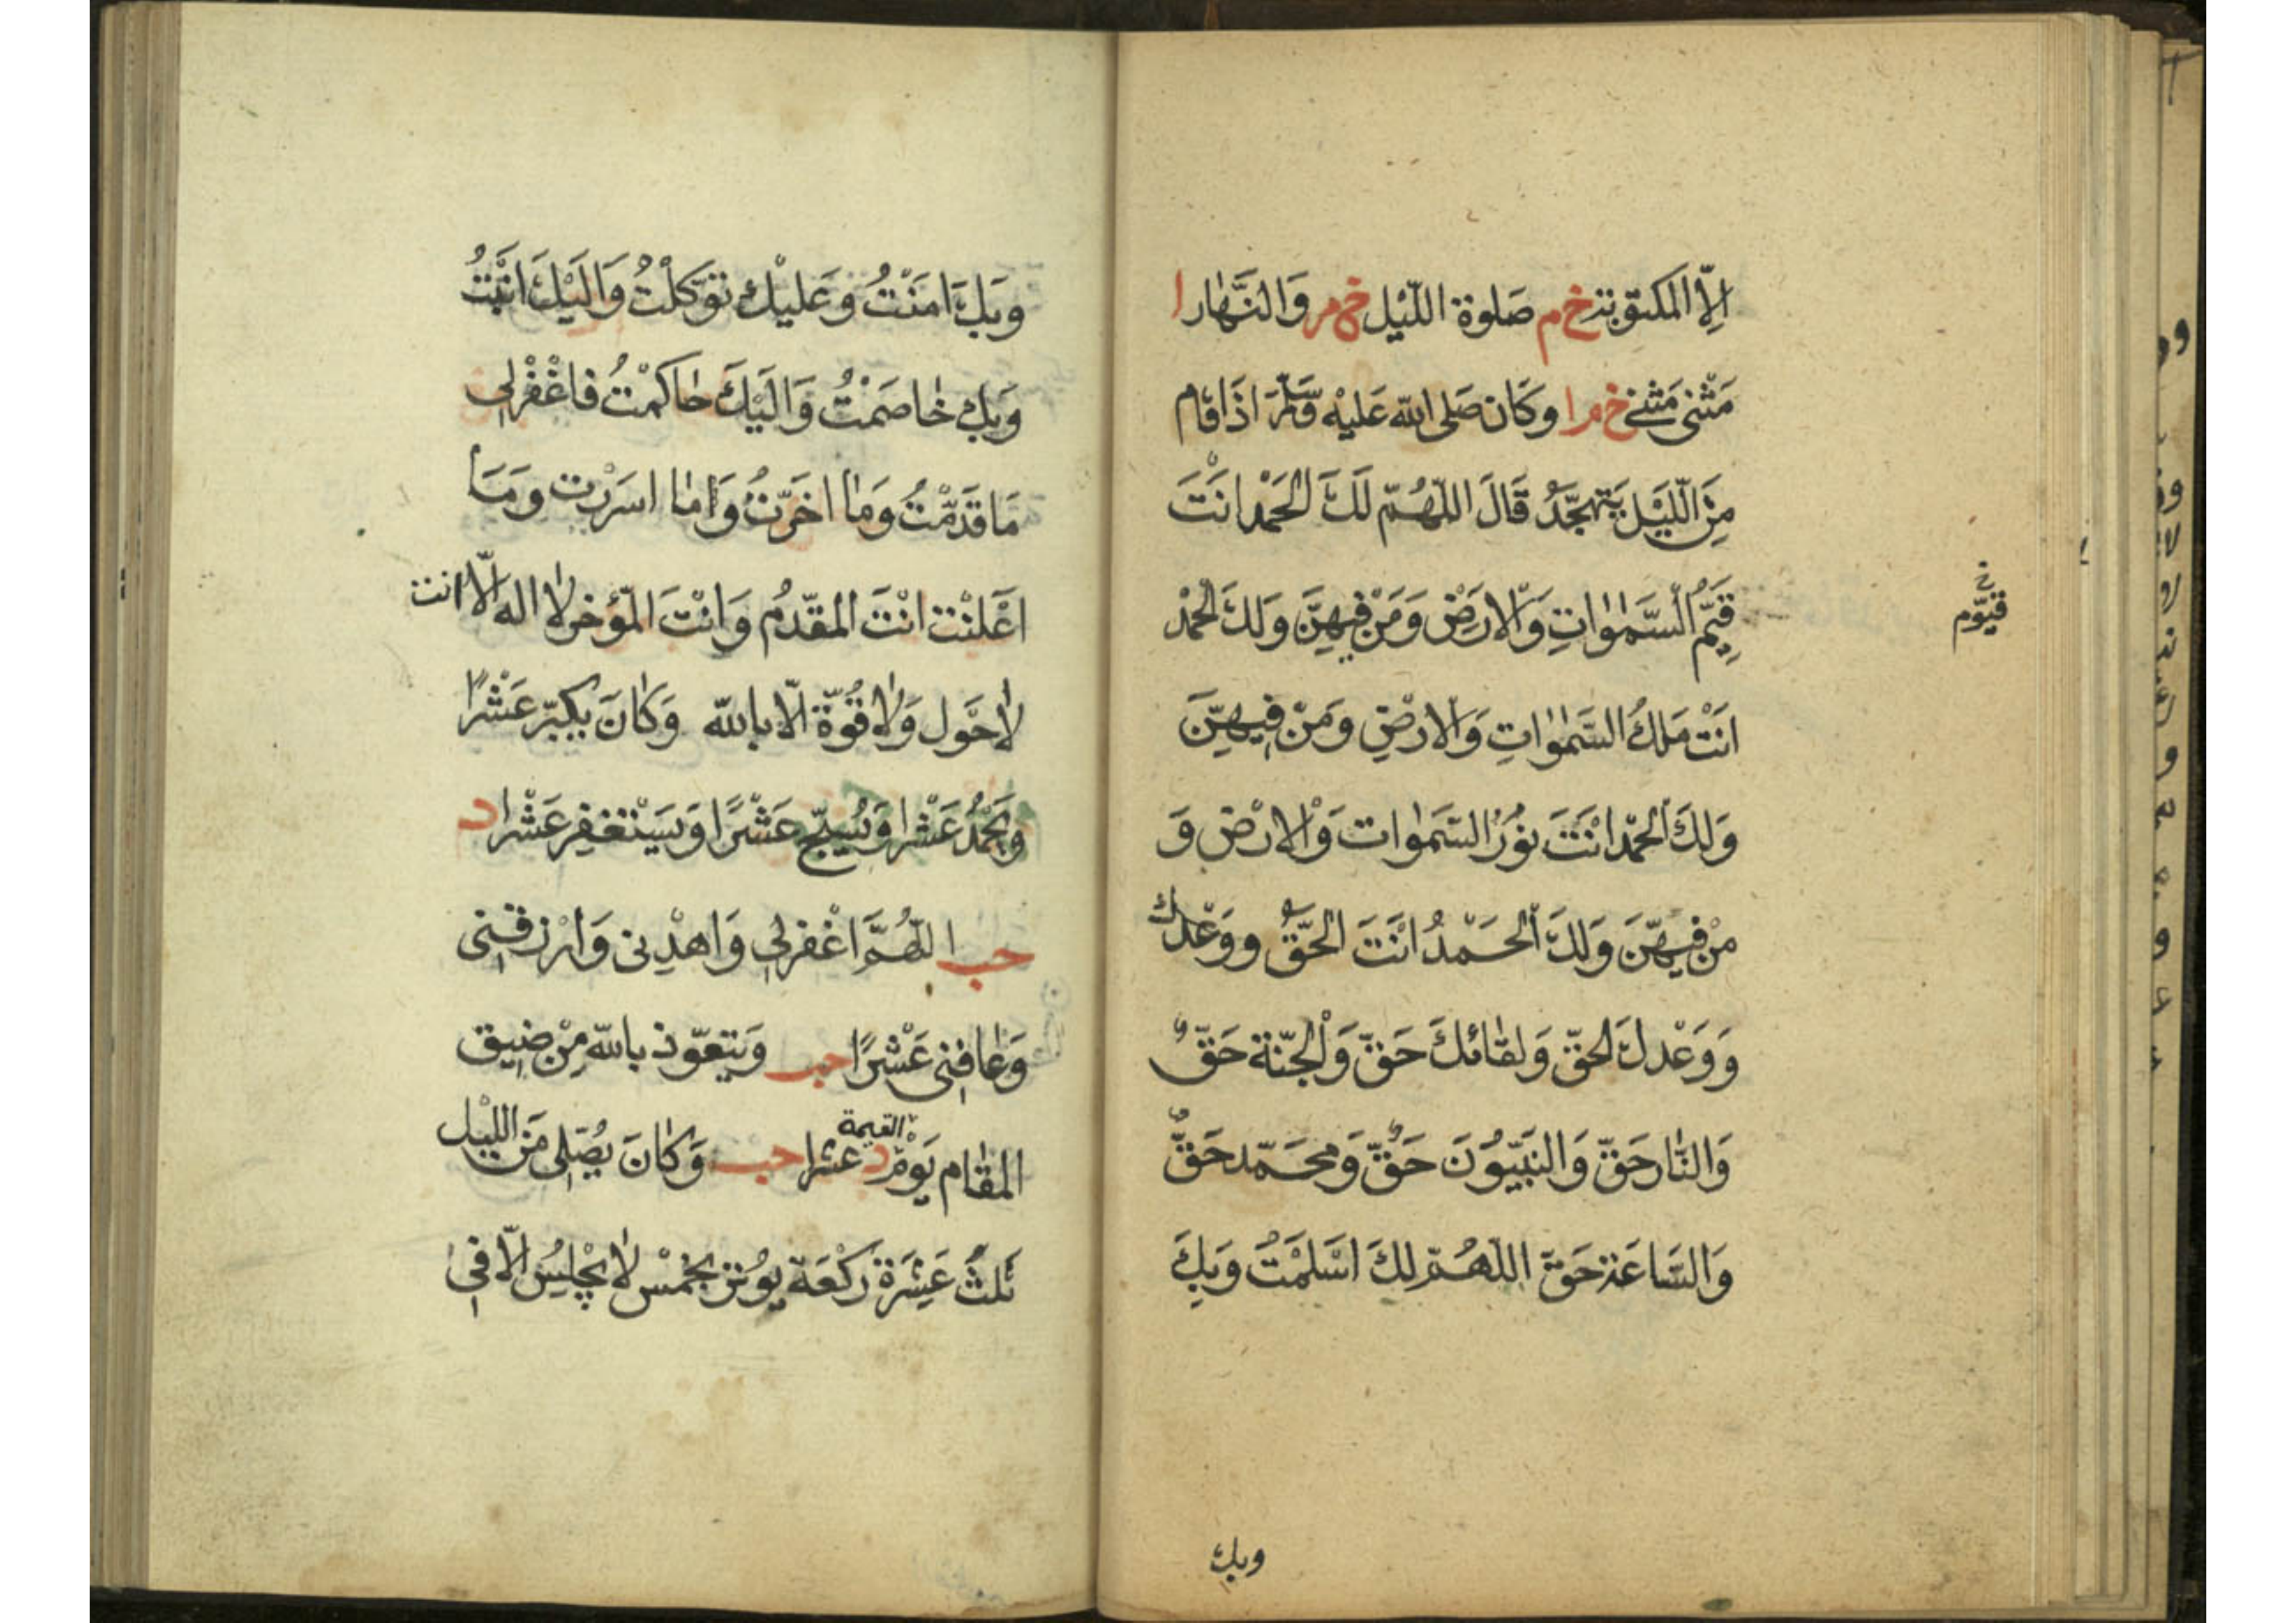 اِلَّا المَكتوبَة خ م صَلوة اللَّيْل خ م وَالنَّهَار ا
مَثْنى مَثنى خ م ا وكَان صَلى الله عَليْه وَسَلَّمَ اذَا قَام
مِنَ اللَّيْلِ يَتَهجَّدُ قَالَ اللّهُمّ لَكَ الحَمْد انْتَ
قَيِّمُ السَّمٰوَاتِ وَالارَضْ وَمَنْ فِيهِنَّ وَلكَ الحَمْد
خ
قيّوم
انَتْ مَلكُ السَّمٰوَاتِ وَالارْضِ وَمَنْ فِيهِنَّ
وَلكَ الحَمْد انْتَ نوُرُ السَّمَوات وَالارْض وَ
مَنْ فِيهِنَّ وَلكَ الحَمْدُ انْتَ الحَقُّ ووَعْدك
وَوَعْدكَ الحَقّ وَلقَائكَ حَقّ وَالْجَنّة حَقّ
وَالنَّار حَقّ وَالنَبيّوُنَ حَقُّ وَمحَمّد حَقٌّ
وَالسَّاعَة حَقّ اللّهُمّ لكَ اسْلَمْتُ وَبِكَ
وبك
وبكَ امَنْتُ وَعَليْك توَكلْتُ وَالَيْكَ انَبْتُ
وَبِك خاصَمْتُ وَالَيْكَ حاكَمْتُ فاغْفرْلى
مَا قدَّمْتُ وَما اخَرّتُ وَاما اسَرْرت وَمَا
اعَْلنْت انْتَ المقدّمُ وَانْتَ المؤَخر لا اله الّا انت
لاحَوَل وَلا قُوَّة الّا بالله وَكانَ يكبّر عَشْرًا
وَيَحْمَدُ عَشْرا وَيُسَبّح عَشْرًا وَيسَتْغفِر عَشْرا د
حب اللّهُمَّ اغْفرلى وَاهدِنى وَارْزقنى
وَعافِنى عَشْرًا حب وَيتعوّذ بالله مِنْ ضِيق
المقَام يَوْم القيمة د عشرا حب وَكانَ يُصَلِى مَنَ اللّيْل
ثَلثَ عَشِرَة رَكْعَة يوُتر بخمْس لا يجْلِسُ الّا فى